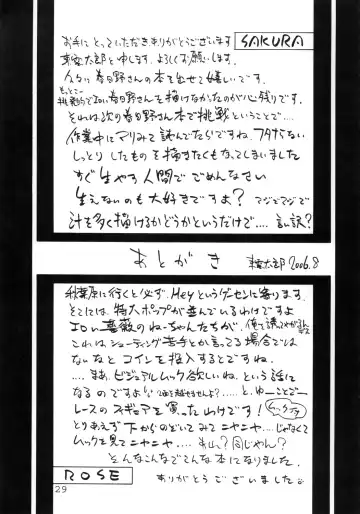 SAKURA
お手にとっていただきありがとうございます
と申します。よろしくお願いします。
春日野さんの本を出せて嬉しいです。
もっとこー
挑発的でエロい春日野さんを描けなかったのが心残りです。
それは次の春日野さん本で挑戦ということで…
作業中にマリみて読んでたらですね、フタがない
しっとりしたものを描きたくもなってしまいました
すぐ生やす人間でごめんなさい
生えないのも大好きですよ？マジでマジで
汁を多く描けるかどうかというだけで…。言い訳？
あとがき
2006.8
秋葉原に行くと必ず、Heyというゲーセンに寄ります。
そこには、特大ポップが並んでいるわけですよ
エロい薔薇のねーちゃんたちが、俺を誘って
これは、シューティング苦手とか言ってる場合では
ないなとコインを投入するとですね。
…まあ、ビジュアルムック欲しいね、という話に
なるのですよ
…と、ゆーことでー
レースのフィギュアを買ったわけです！
とりあえず下からのぞいてみてニヤニヤ…じゃなくて
ムックを見てニヤニヤ…あれっ？同じじゃん？
そんなこんなでこんな本になりました。
ありがとうございました
ROSE
29